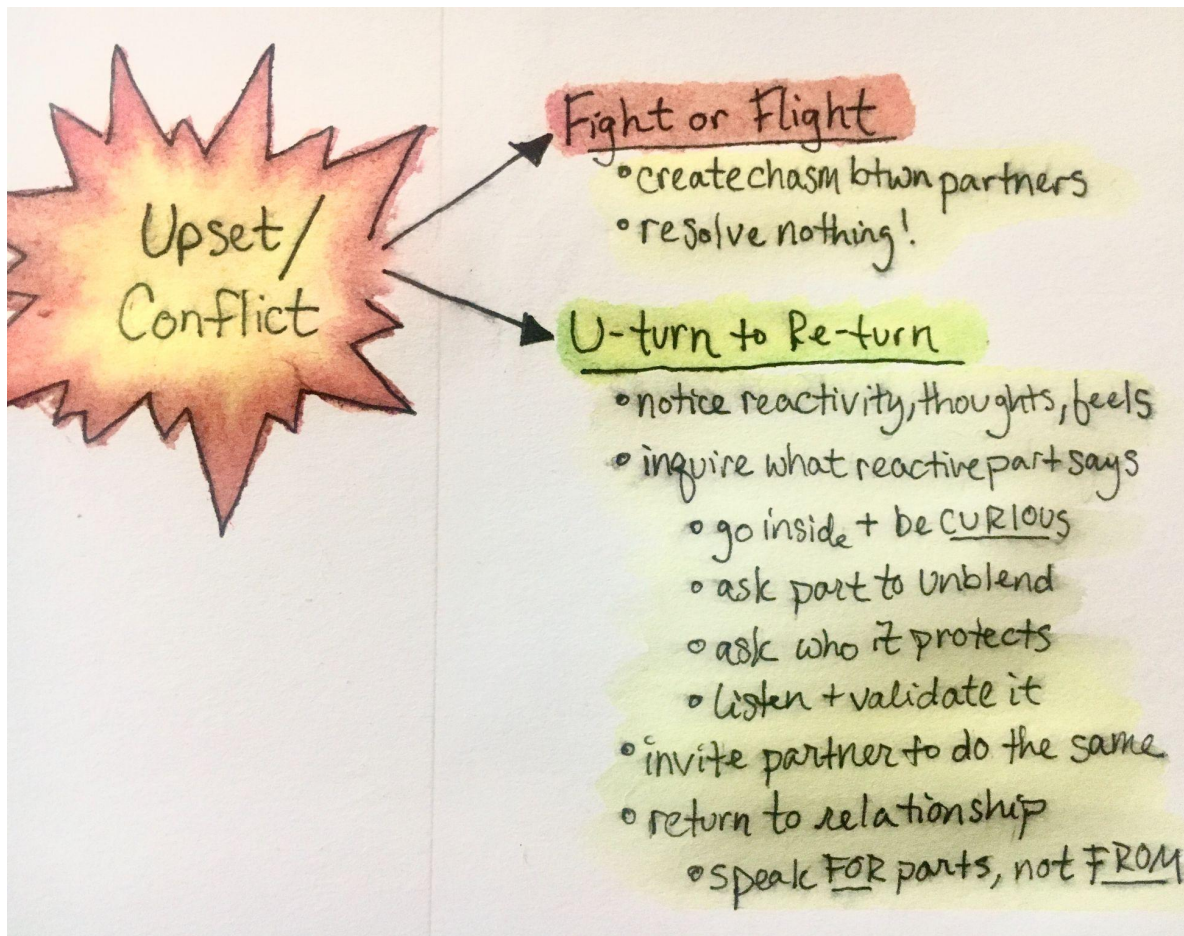 Upset/
Conflict
Fight or Flight
•create chasm btwn partners
•resolve nothing!
U-turn to Re-turn
•notice reactivity, thoughts, feels
•inquire what reactive part says
•go inside + be CURIOUS
•ask part to unblend
•ask who it protects
•listen + validate it
•invite partner to do the same
•return to relationship
•speak FOR parts, not FROM